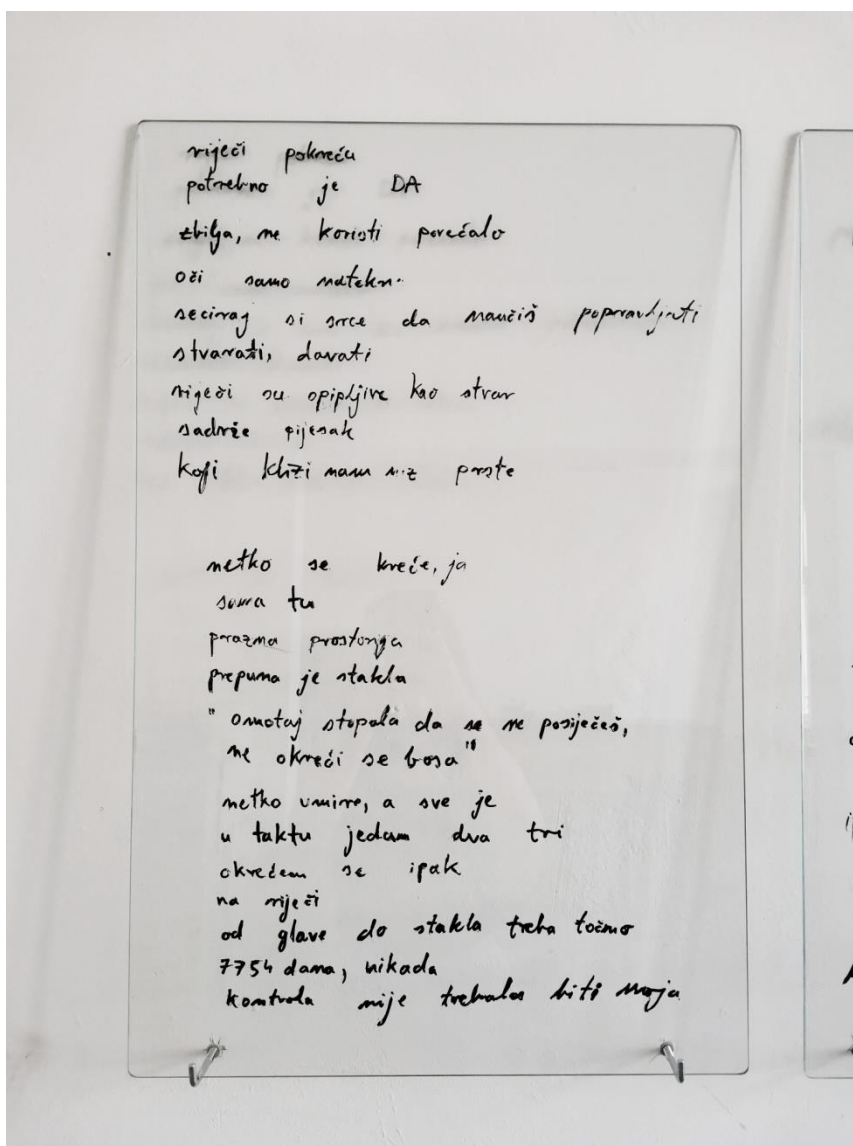 riječi pokreću
potrebno je DA
zbilja, ne koristi povećalo
oči samo
seciraj si srce da naučiš popravljati
stvarati, davati
riječi su opipljive kao stvar
sadrže pijesak
koji klizi nam niz prste
netko se kreće, ja
sama tu
prazna prostorija
prepuna je stakla
"omotaj stopala da se ne posiječeš,
ne okreći se bosa"
netko umire, a sve je
u taktu jedan dva tri
okrećem se ipak
na riječi
od glave do stakla treba točno
7754 dana, nikada
kontrola nije trebala biti moja